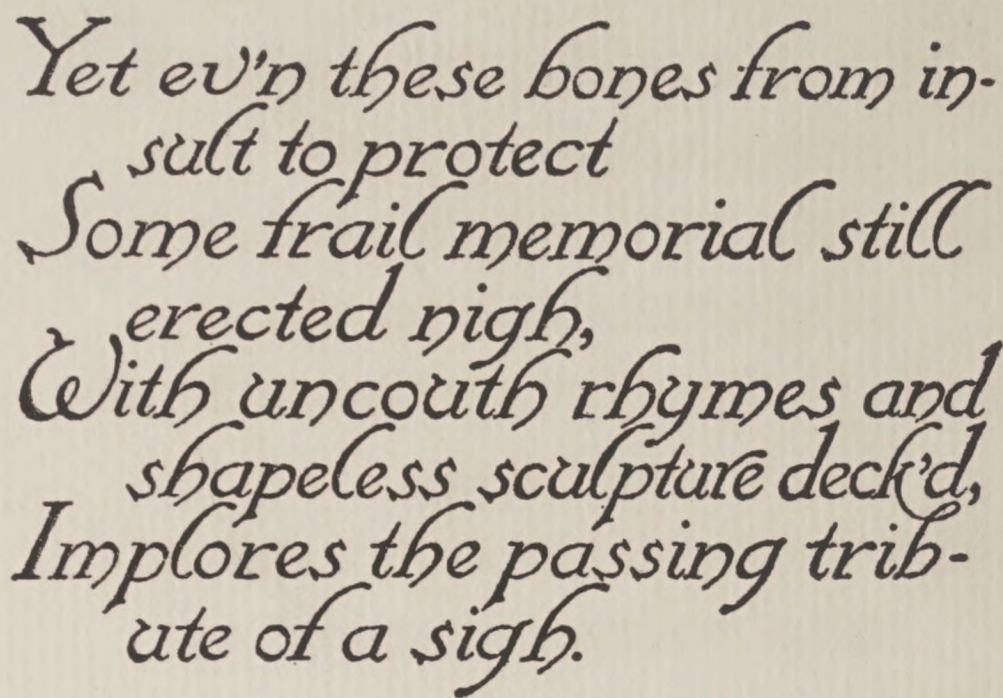 Yet ev'n these bones from in-
sult to protect
Some frail memorial still
erected nigh,
With uncouth rhymes and
shapeless sculpture deck'd,
Implores the passing trib-
ute of a sigh.